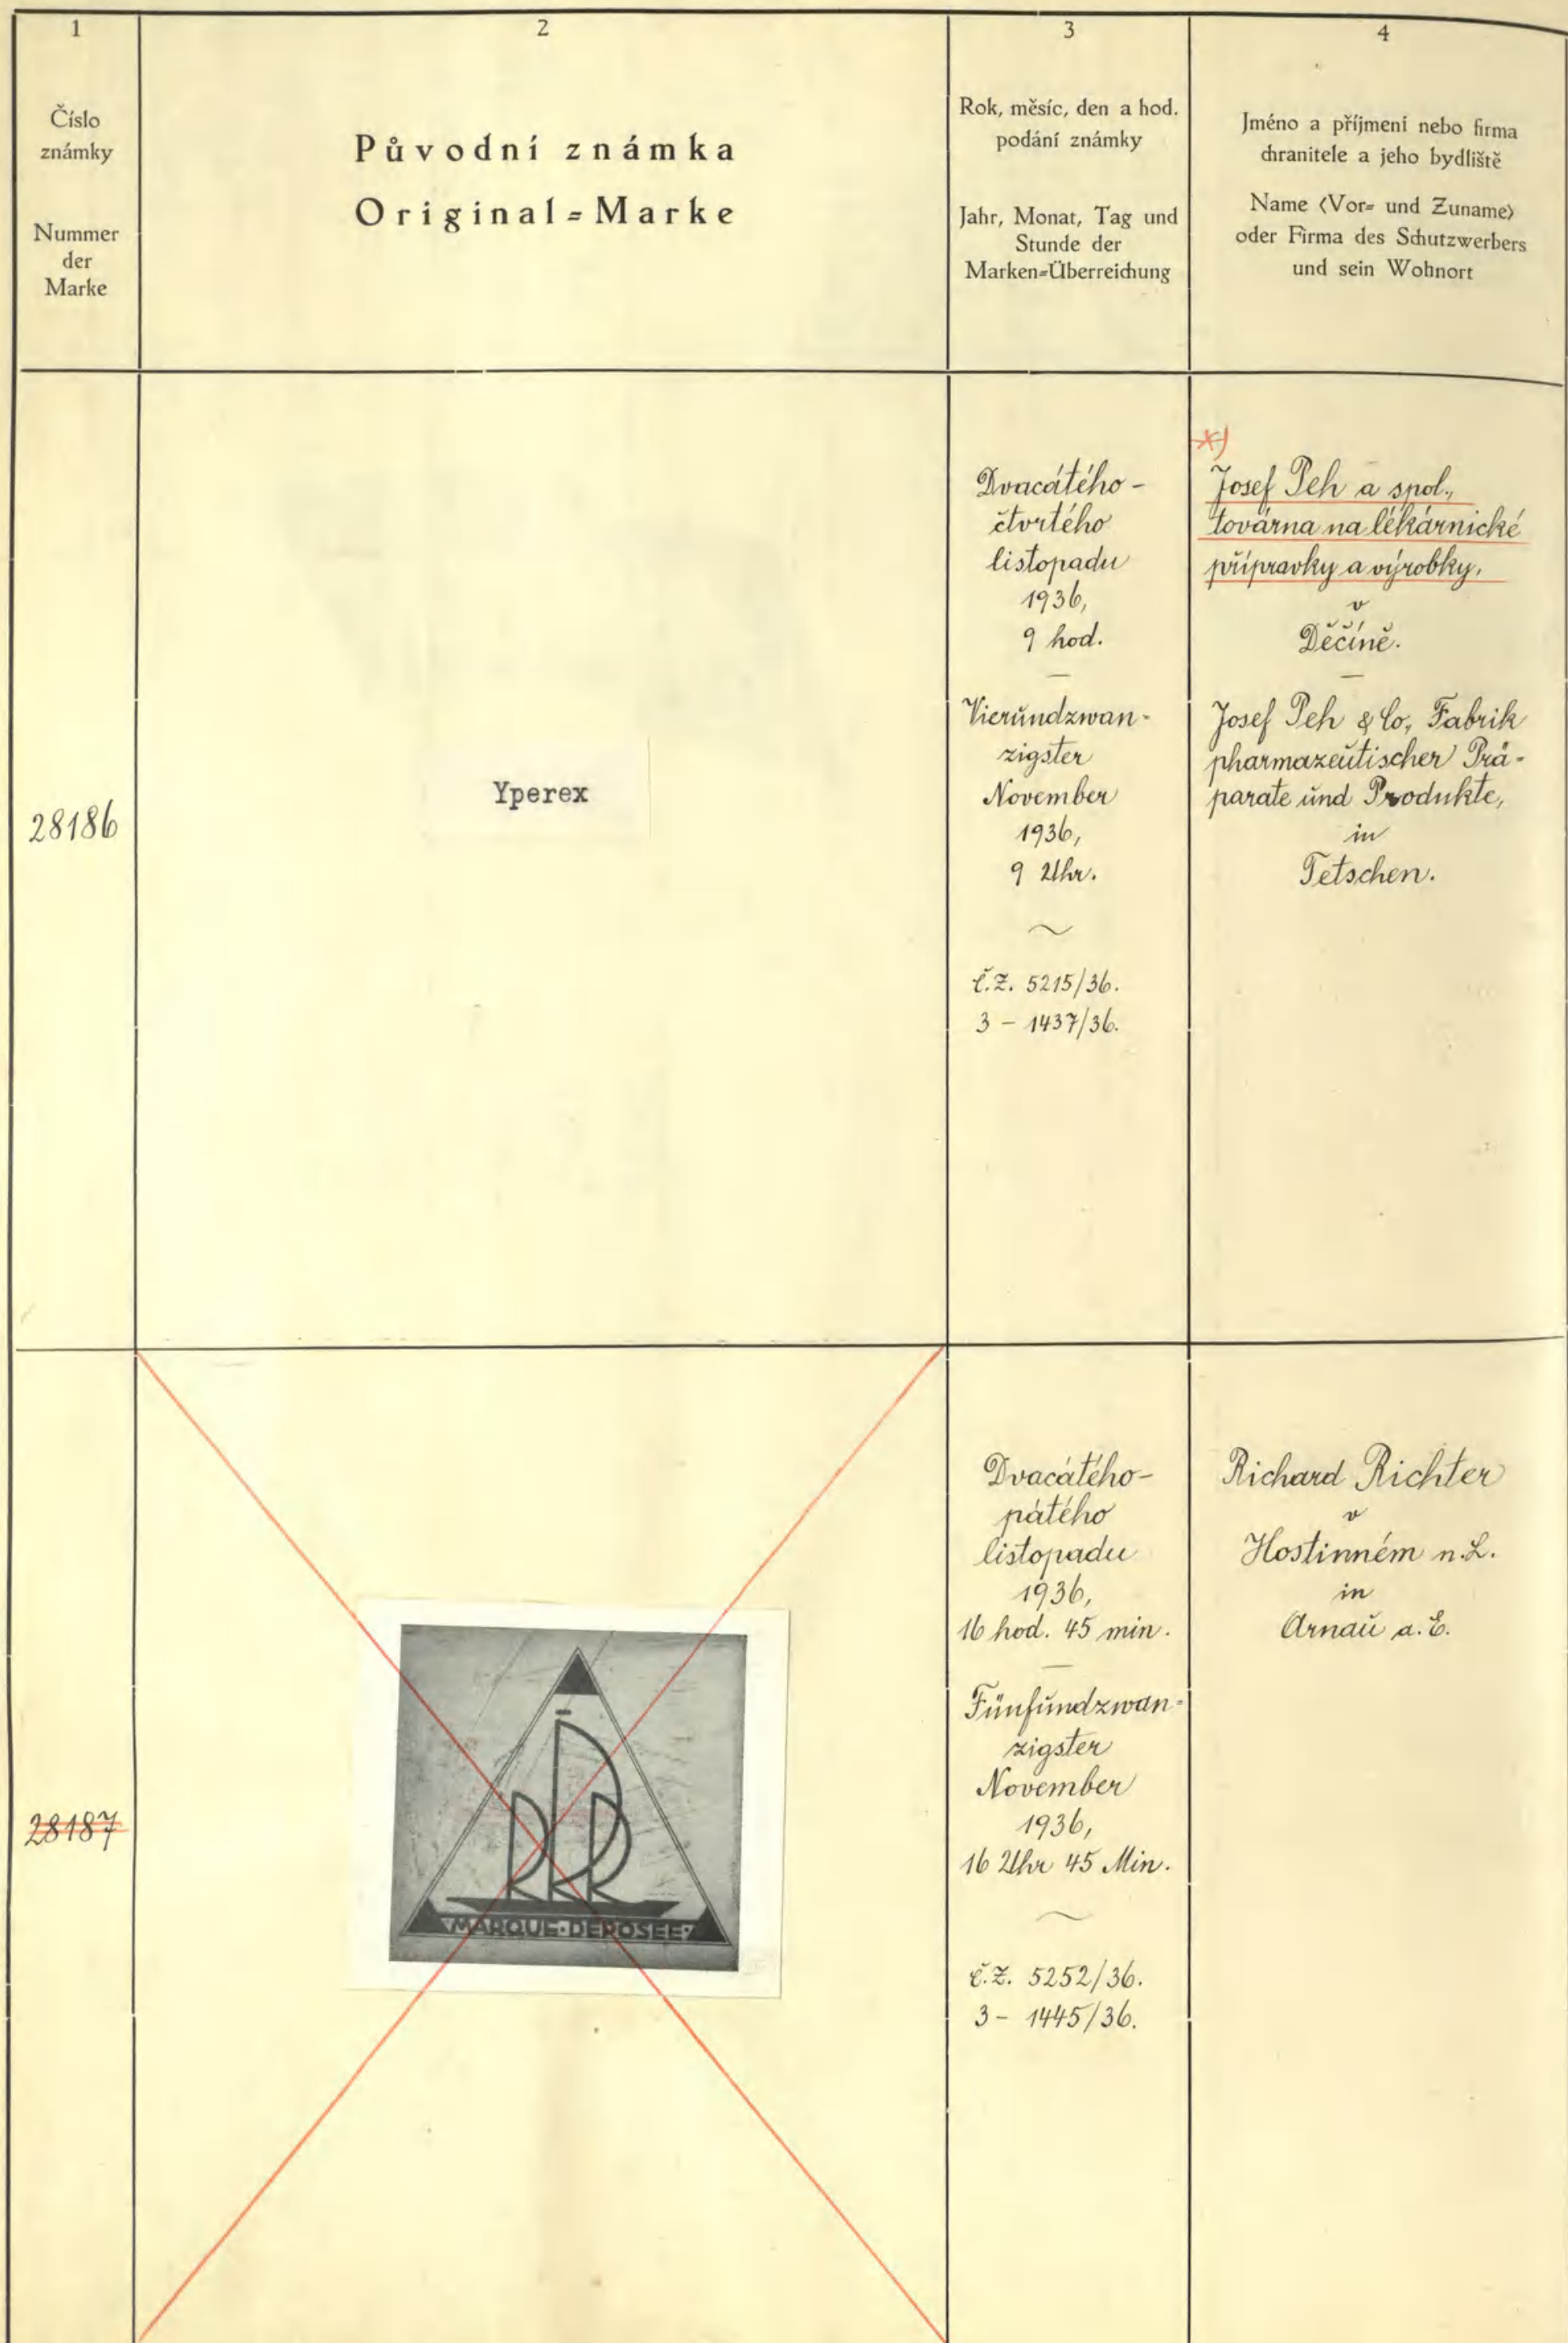 1
Číslo
známky
Nummer
der
Marke
2
Původní známka
Original=Marke
3
Rok, měsíc, den a hod.
podání známky
Jahr, Monat, Tag und
Stunde der
Marken=Überreichung
4
Jméno a příjmení nebo firma
chranitele a jeho bydliště
Name (Vor= und Zuname)
oder Firma des Schutzwerbers
und sein Wohnort
28186
Yperex
Dvacátého-
čtvrtého
listopadu
1936,
9 hod.
Vierundzwan-
zigster
November
1936,
9 Uhr.
č.z. 5215/36.
3 - 1437/36.
x)
Josef Peh a spol.,
továrna na lékárnické
přípravky a výrobky,
v
Děčíně.
Josef Peh & Co, Fabrik
pharmazeutischer Prä-
parate und Produkte,
in
Tetschen.
28187
MARQUE·DEPOSEE
Dvacátého-
pátého
listopadu
1936,
16 hod. 45 min.
Fünfundzwan-
zigster
November
1936,
16 Uhr 45 Min.
č.z. 5252/36.
3 - 1445/36.
Richard Richter
v
Hostinném n.L.
in
Arnau a.E.